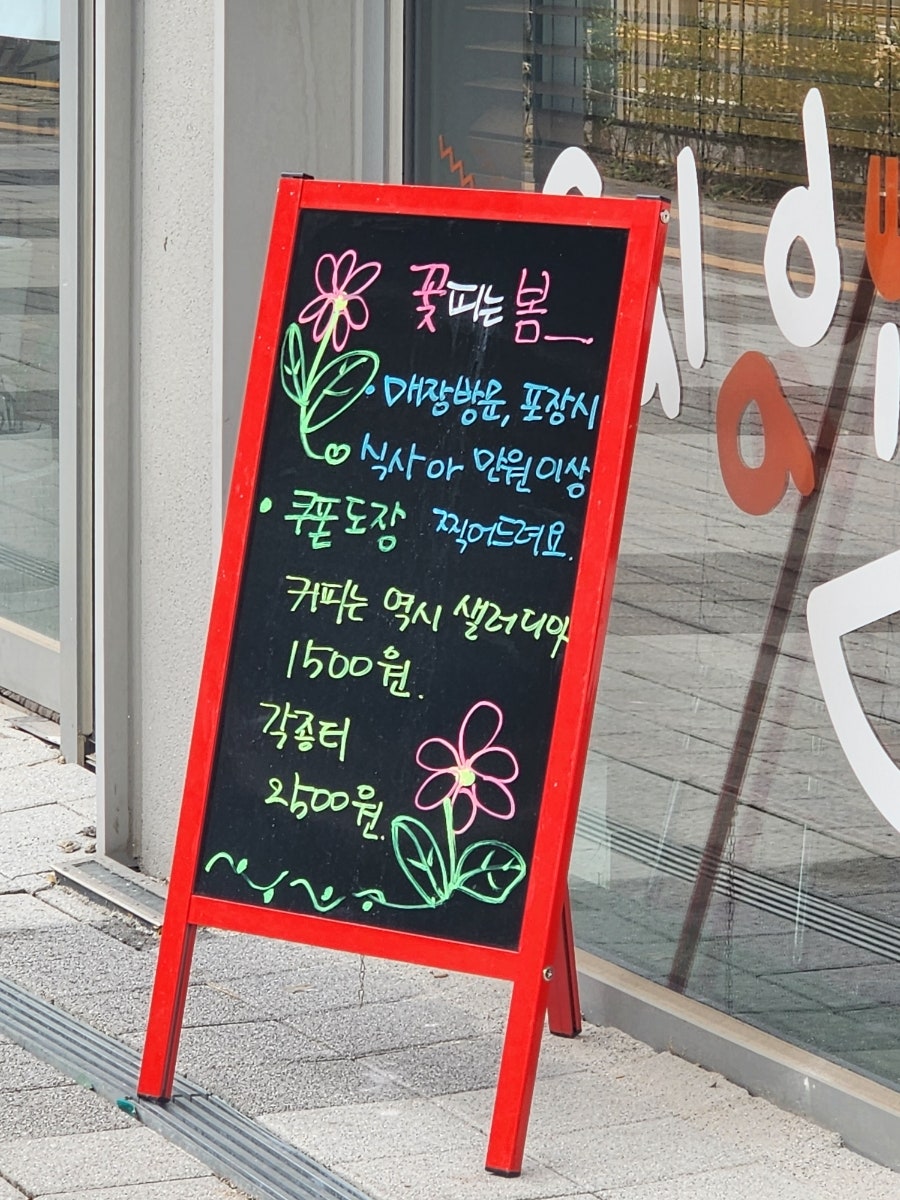 꽃피는 봄
• 매장방문, 포장시
식사 아 만원이상
• 쿠폰도장 찍어드려요.
커피는 역시 샐러디아
1500원.
각종티
2500원.